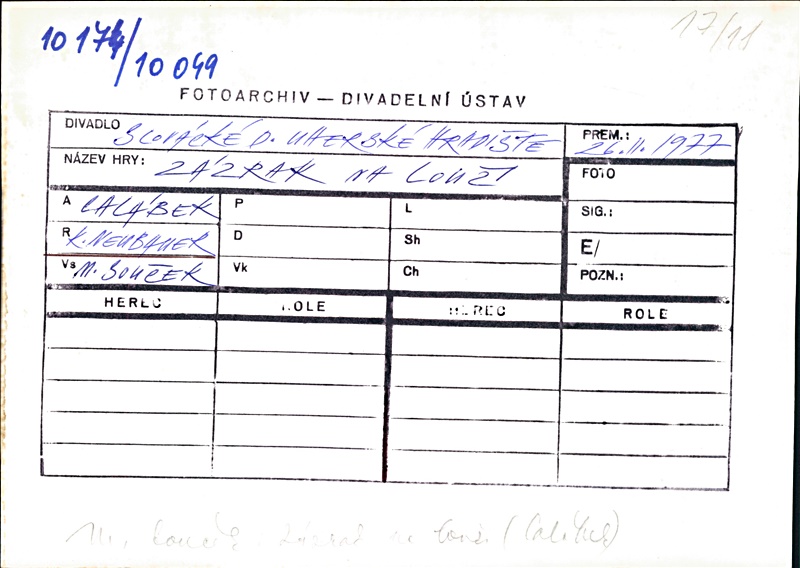 17/11
10 174/10 099
FOTOARCHIV — DIVADELNÍ ÚSTAV
DIVADLO SLOVÁCKÉ D. UHERSKÉ HRADIŠTE PREM.: 26.11.1977
NÁZEV HRY: ZÁZRAK NA LOUŽI FOTO
A CALÁBEK P L SIG.:
R K. NEUBAUER D Sh E/
Vs M. SOUČEK Vk Ch POZN.:
HEREC ROLE HEREC ROLE
M. Souček